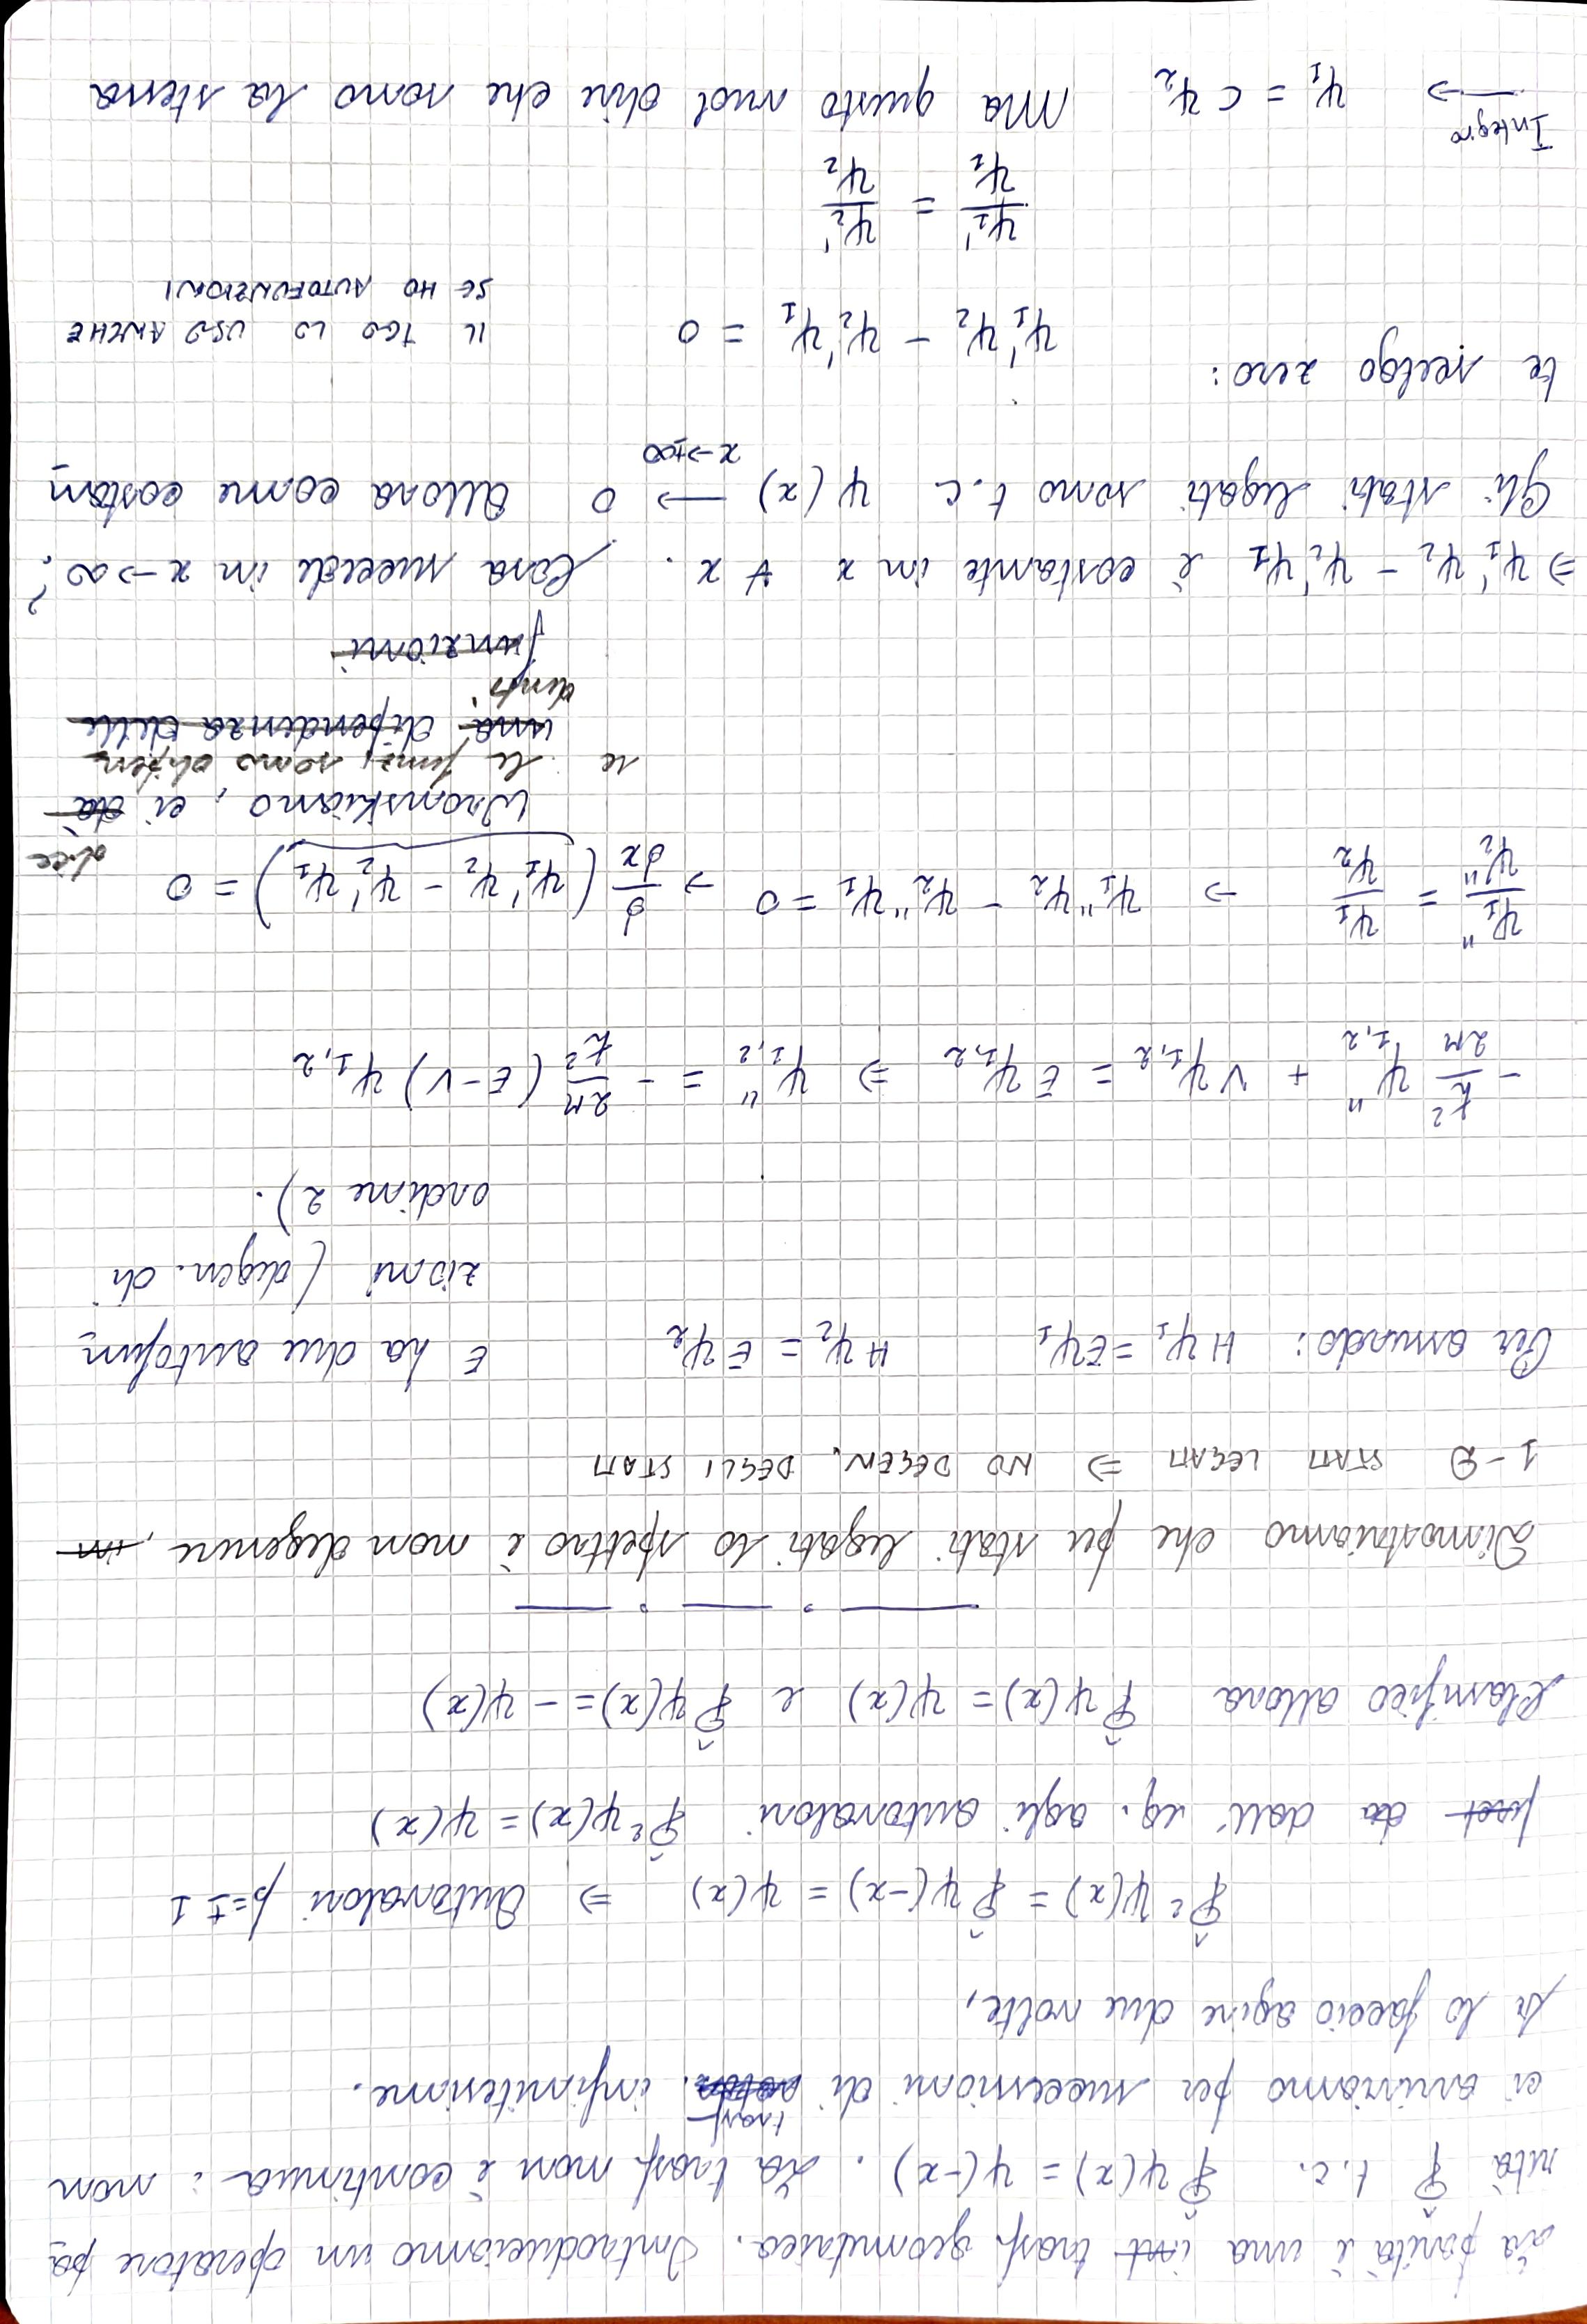 La parità è una int trasf geometrica. Introduciamo un operatore pa
rità P̂ t.c. P̂ψ(x) = ψ(-x). La trasf non è continua: non
ci arriviamo per successioni di trasf infinitesime.
Se lo faccio agire due volte,
P̂²ψ(x) = P̂ψ(-x) = ψ(x) ⇒ Autovalori p=±1
da dall' eq. agli autovalori P̂²ψ(x) = ψ(x)
Classifico allora P̂ψ(x) = ψ(x) e P̂ψ(x) = -ψ(x)
Dimostriamo che per stati legati lo spettro è non degenere, in
1-D STATI LEGATI ⇒ NO DEGEN. DEGLI STATI
Per assurdo: Hψ₁ = Eψ₁ Hψ₂ = Eψ₂ E ha due autofun
zioni (degen. di
ordine 2).
-ħ²/2M ψ''₁,₂ + Vψ₁,₂ = Eψ₁,₂ ⇒ ψ''₁,₂ = -2M/ħ² (E-V) ψ₁,₂
ψ₁''/ψ₂'' = ψ₁/ψ₂ → ψ₁''ψ₂ - ψ₂''ψ₁ = 0 → d/dx (ψ₁'ψ₂ - ψ₂'ψ₁) = 0
dice
Wronskiano, ci dà
se le funz. sono dipen
una dipendenza delle
denti
funzioni
⇒ ψ₁'ψ₂ - ψ₂'ψ₁ è costante in x ∀ x. Cosa succede in x→∞?
Gli stati legati sono t.c. ψ(x) ⟶ 0 Allora come costan
x→±∞
te scelgo zero:
ψ₁'ψ₂ - ψ₂'ψ₁ = 0 IL TEO LO USO ANCHE
SE HO AUTOFUNZIONI
ψ₁'/ψ₁ = ψ₂'/ψ₂
Integro
⟶ ψ₁ = Cψ₂ Ma questo vuol dire che sono la stessa